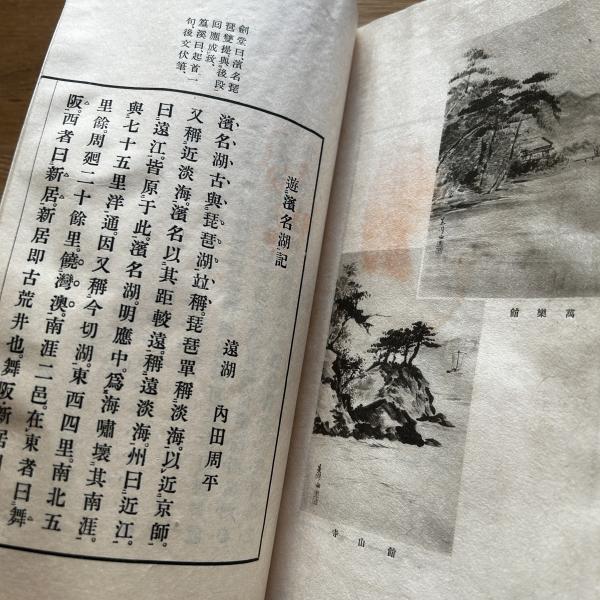 萬樂館
館山寺
劍堂曰、濱名琵
琶雙提、與後段
回應成致、
篁溪曰、起首一
句、後文伏筆、
遊濱名湖記
遠湖 內田周平
濱名湖古與琵琶湖竝稱。琵琶單稱淡海。以近京師。
又稱近淡海。濱名以其距較遠。稱遠淡海。州曰近江。
曰遠江。皆原于此。濱名湖。明應中。爲海嘯壞其南涯。
與七十五里洋通。因又稱今切湖。東西四里。南北五
里餘。周廻二十餘里。饒灣澳。南涯二邑。在東者曰舞
阪。西者曰新居。新居即古荒井也。舞阪新居